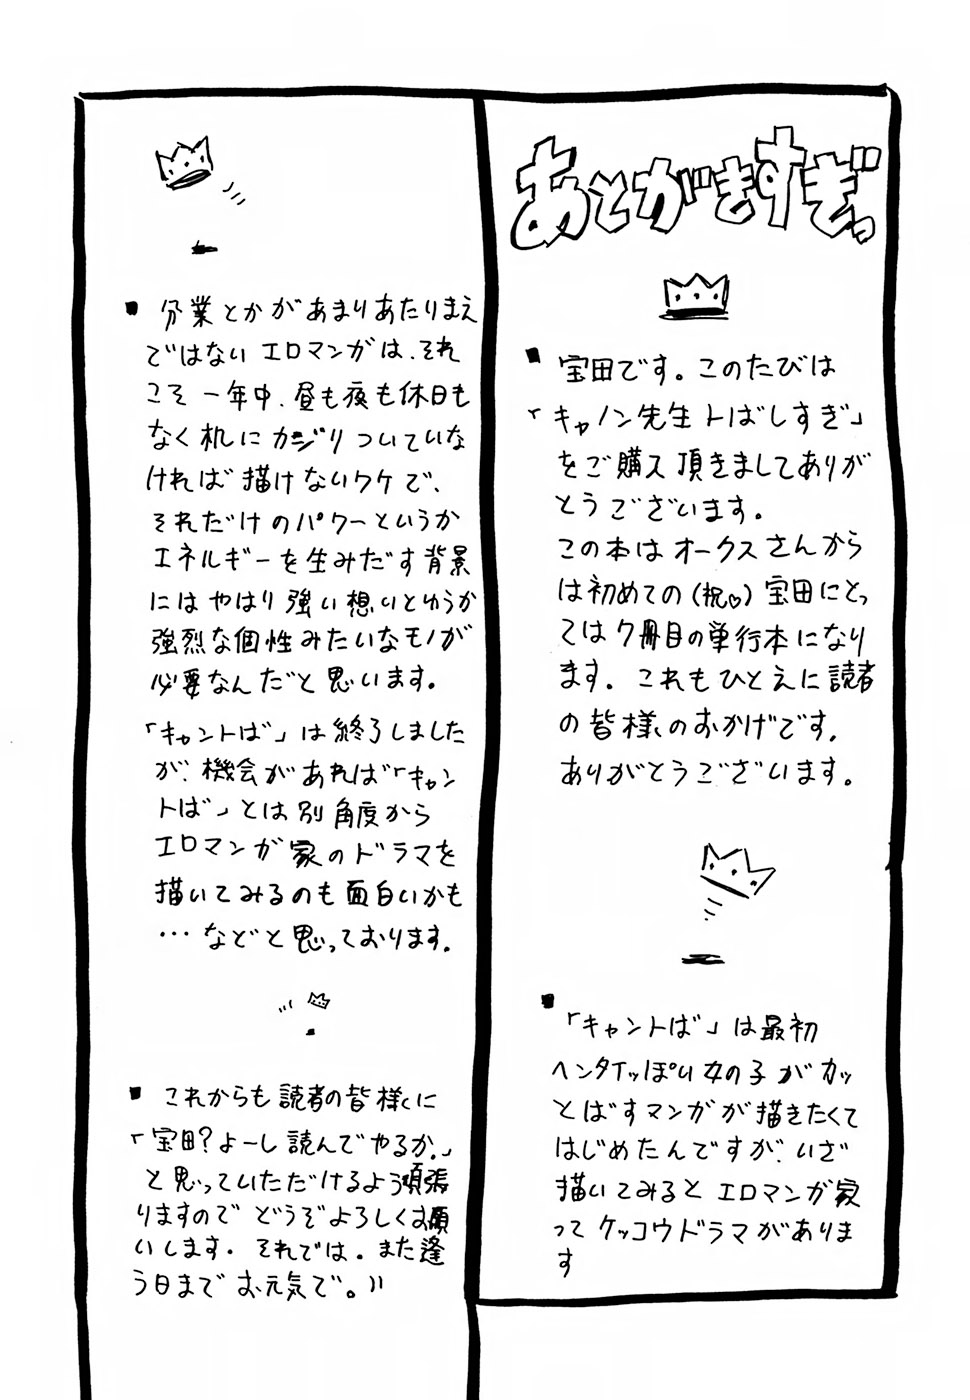 あとがきすぎっ
■ 宝田です。このたびは
「キャノン先生トばしすぎ」
をご購入頂きましてありが
とうございます。
この本はオークスさんから
は初めての(祝♡)宝田にとっ
ては7冊目の単行本になり
ます。これもひとえに読者
の皆様のおかげです。
ありがとうございます。
■ 「キャントば」は最初
ヘンタイっぽい女の子がカッ
とばすマンガが描きたくて
はじめたんですが、いざ
描いてみるとエロマンガ家
ってケッコウドラマがありま
す
■ 分業とかがあまりあたりまえ
ではないエロマンガは、それ
こそ一年中、昼も夜も休日も
なく机にカジりついていな
ければ描けないワケで、
それだけのパワーというか
エネルギーを生みだす背景
にはやはり強い想いとゆうか
強烈な個性みたいなモノが
必要なんだと思います。
「キャントば」は終了しました
が、機会があれば「キャン
トば」とは別角度から
エロマンガ家のドラマを
描いてみるのも面白いかも
…などと思っております。
■ これからも読者の皆様に
「宝田?よーし読んでやるか。」
と思っていただけるよう頑張
りますのでどうぞよろしくお願
いします。それでは。また逢
う日までお元気で。〃